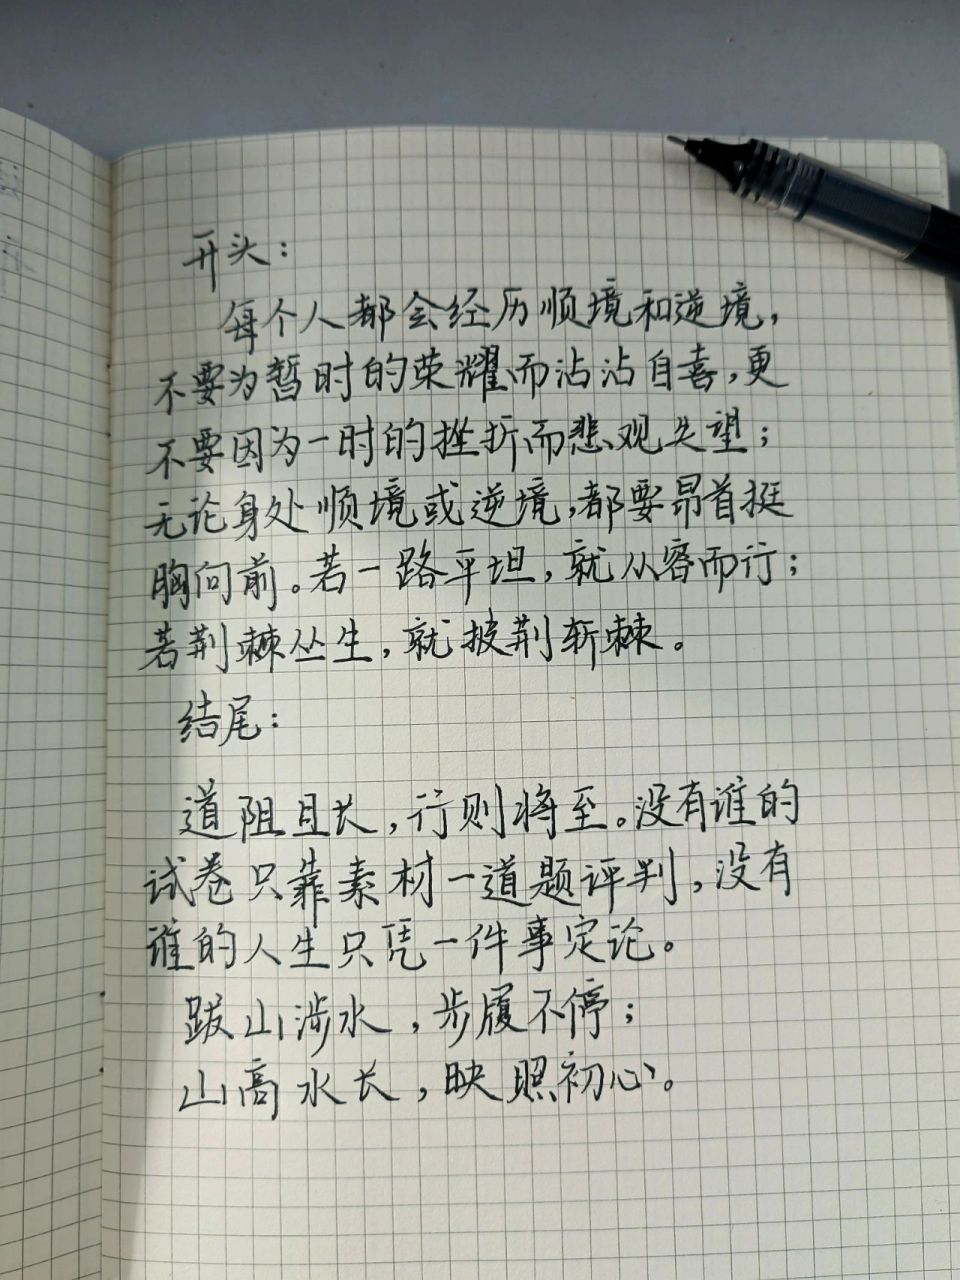 开头：
每个人都会经历顺境和逆境，
不要为暂时的荣耀而沾沾自喜，更
不要因为一时的挫折而悲观失望；
无论身处顺境或逆境，都要昂首挺
胸向前。若一路平坦，就从容而行；
若荆棘丛生，就披荆斩棘。
结尾：
道阻且长，行则将至。没有谁的
试卷只靠素材一道题评判，没有
谁的人生只凭一件事定论。
跋山涉水，步履不停；
山高水长，映照初心。